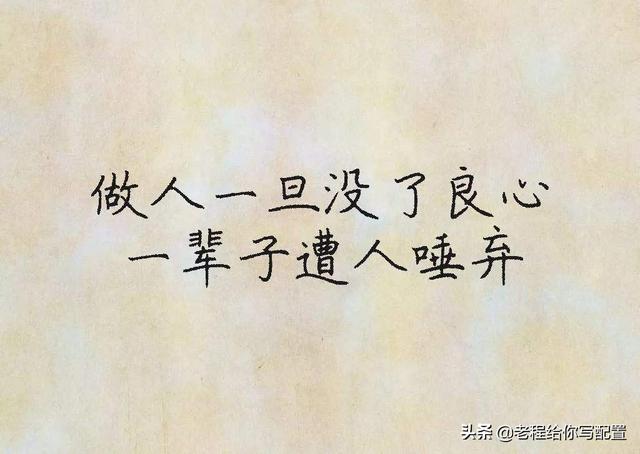 做人一旦没了良心
一辈子遭人唾弃
头条 @老程给你写配置